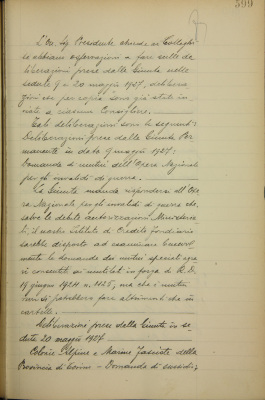 599
L'On. Sig. Presidente chiede ai Colleghi
se abbiano osservazioni a fare sulle de-
liberazioni prese dalla Giunta nelle
sedute 9 e 20 maggio 1927, delibera-
zioni che per copia sono già state in-
viate a ciascun Consigliere.
Tali deliberazioni sono le seguenti:
Deliberazioni prese dalla Giunta Per-
manente in data 9 maggio 1927:
Domanda di mutui dell'Opera Nazionale
per gli invalidi di guerra.
La Giunta manda rispondersi all'Ope-
ra Nazionale per gli invalidi di guerra che,
salvo le debite autorizzazioni Ministeria-
li, il nostro Istituto di Credito Fondiario
sarebbe disposto ad esaminare benevol-
mente le domande dei mutui speciali age-
vi consentiti ai mutilati in forza di R. D.
19 giugno 1924 n. 1125, ma che i mutui
non si potrebbero fare altrimenti che in
cartelle.
Deliberazioni prese dalla Giunta in se-
duta 20 maggio 1927
Colonie Alpine e Marine Fasciste della
Provincia di Torino - Domanda di sussidio;